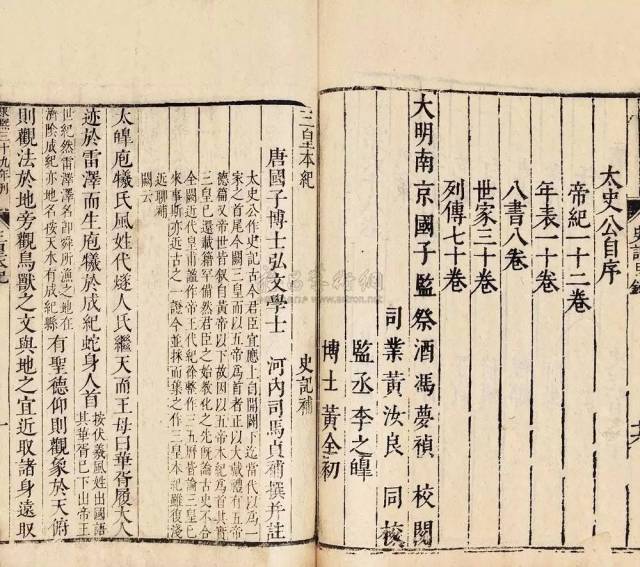 太史公自序
帝紀一十二卷
年表一十卷
八書八卷
世家三十卷
列傳七十卷
大明南京國子監祭酒馮夢禎 校閱
司業黃汝良 同校
監丞李之皥
博士黃全初
三皇本紀 史記補
唐國子博士弘文學士 河內司馬貞補撰并註
太史公作史記古今君臣宜應上自開闢下迄當代以爲一
家之首尾今闕三皇而以五帝爲首者正以大戴禮有五帝
德篇又帝世皆叙自黃帝以下故因以五帝本紀爲首其實
三皇已還載籍罕備然君臣之始教化之先既論古史不合
全闕近代皇甫謐作帝王代紀徐整作三五曆皆論三皇已
來事斯亦近古之一證今並採而集之作三皇本紀雖復淺
近聊補
闕云
太皥庖犧氏風姓代燧人氏繼天而王母曰華胥履大人
迹於雷澤而生庖犧於成紀蛇身人首 按伏羲風姓出國語 其華胥已下出帝王
世紀然雷澤澤名卽舜所漁之地在 濟陰成紀亦地名按天水有成紀縣 有聖德仰則觀象於天俯
則觀法於地旁觀鳥獸之文與地之宜近取諸身遠取
三十九年刊